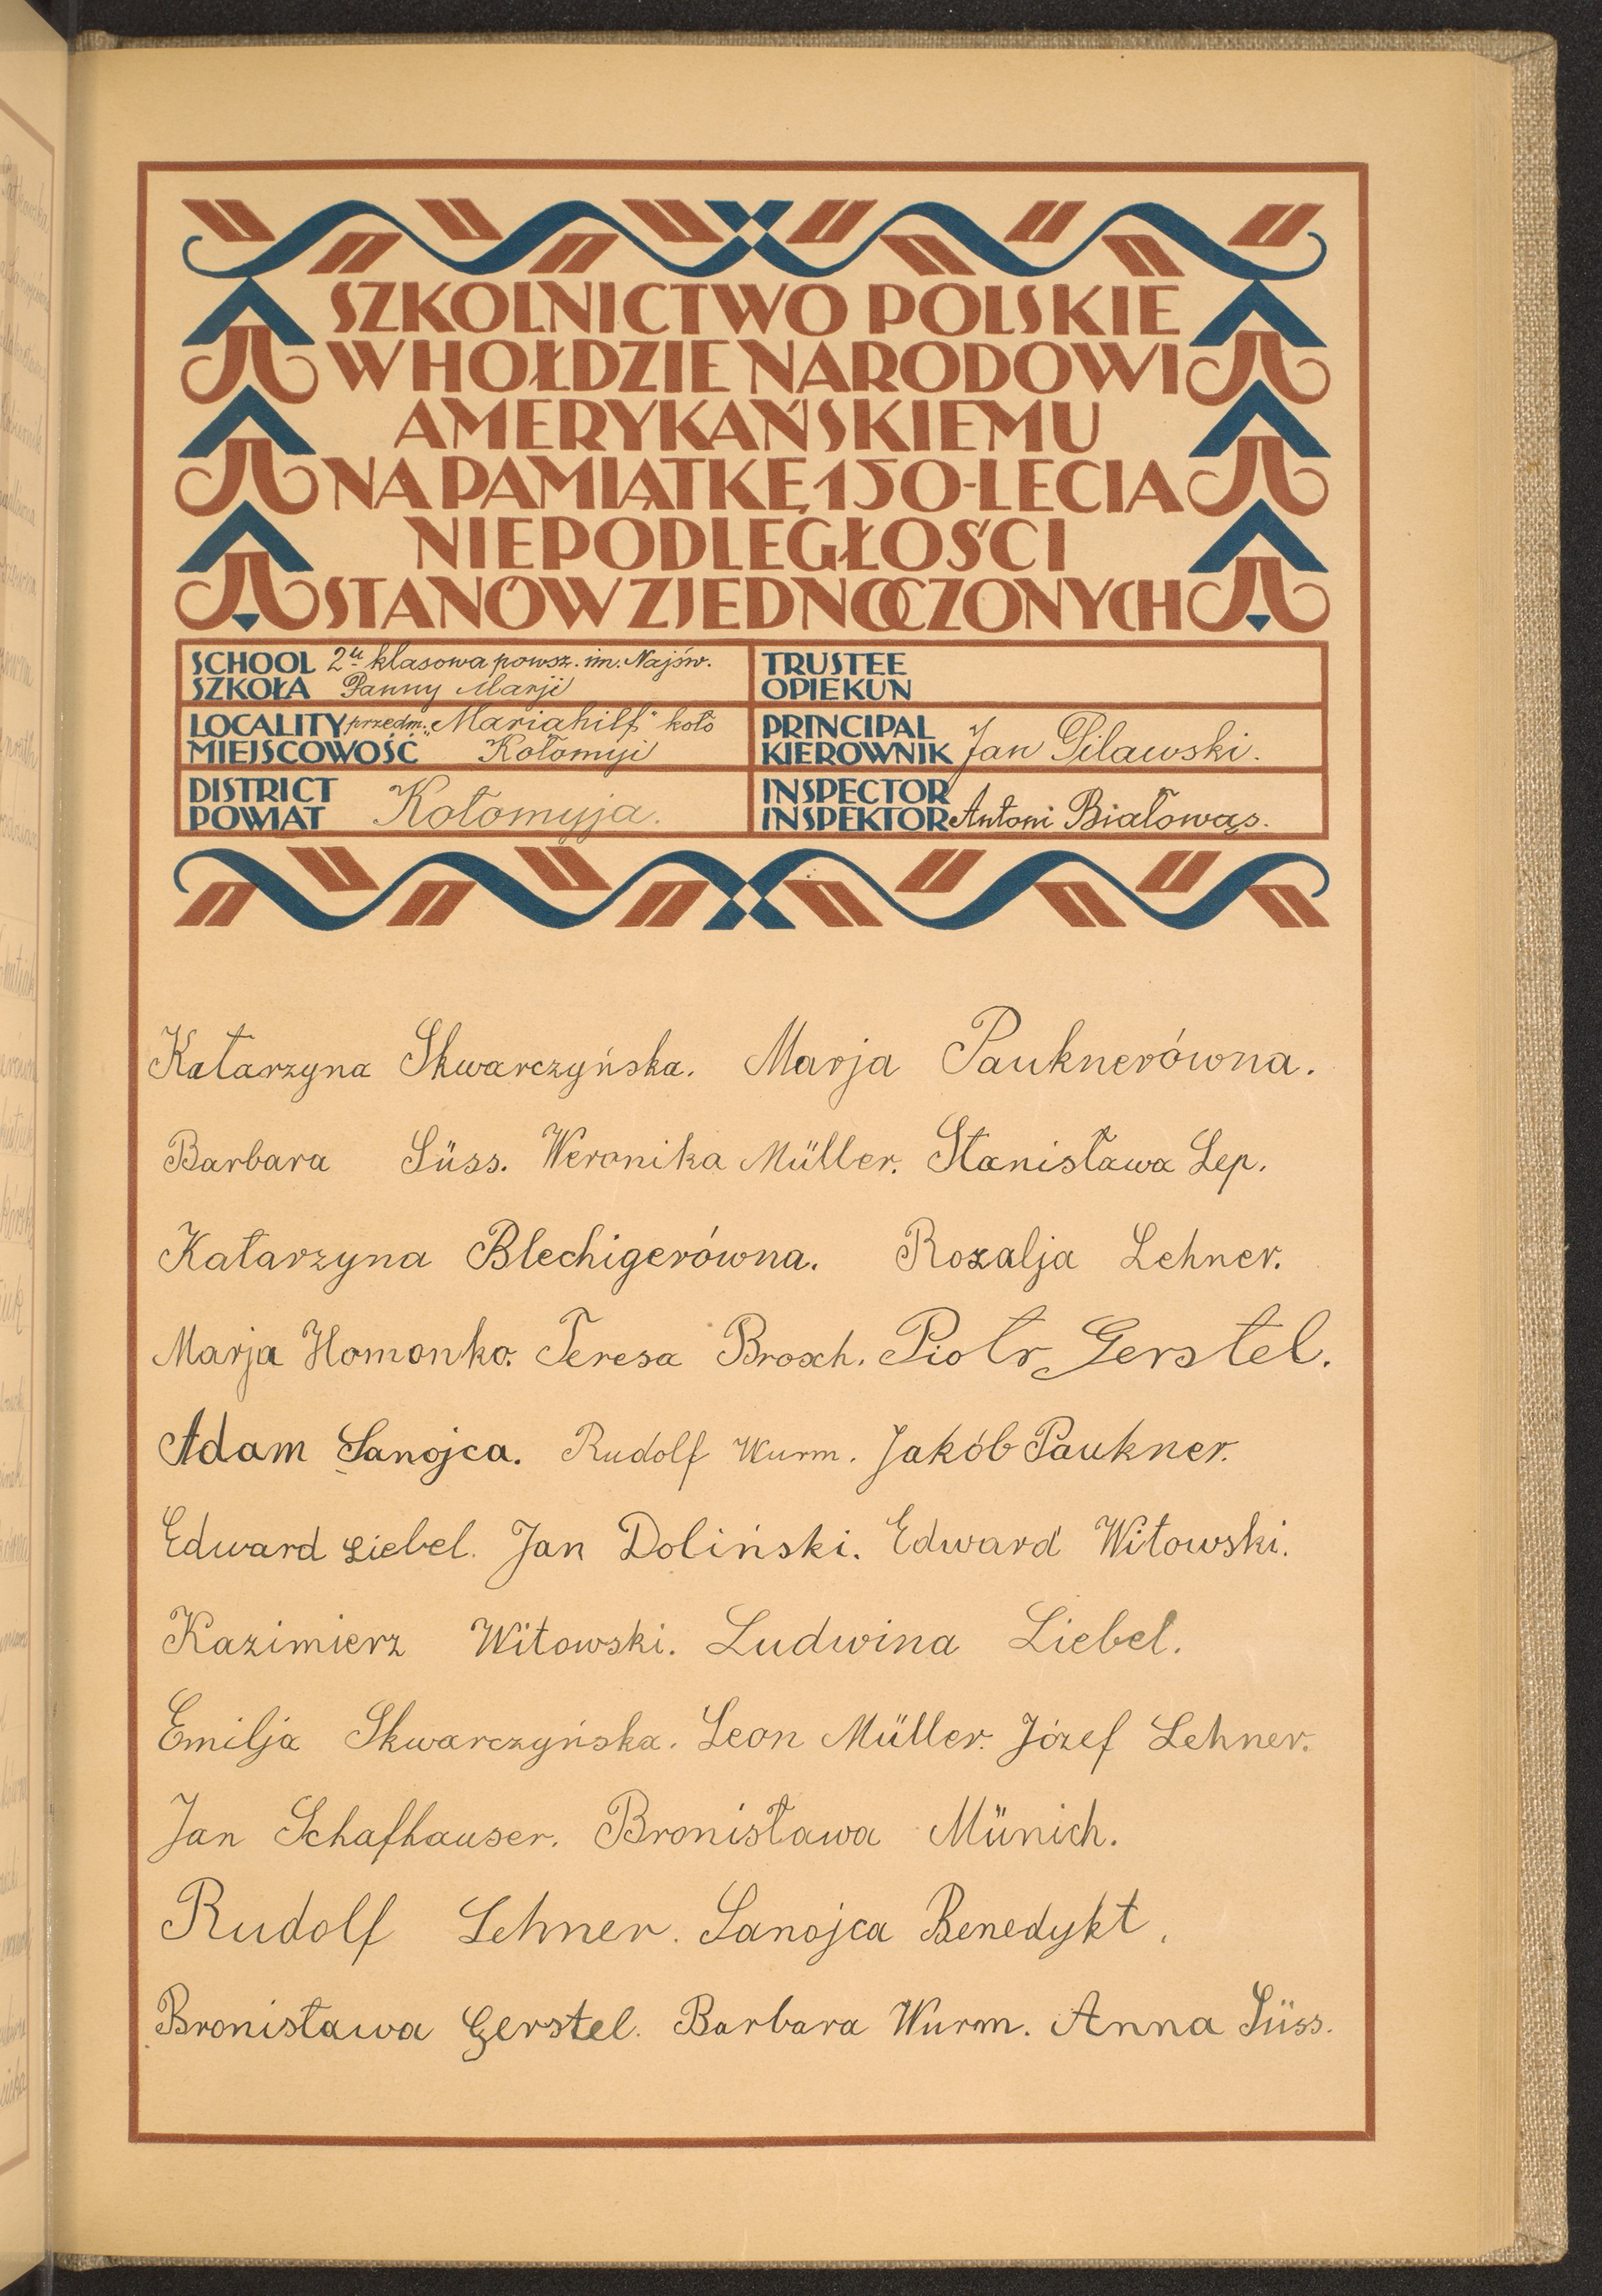 SZKOLNICTWO POLSKIE
W HOŁDZIE NARODOWI
AMERYKAŃSKIEMU
NA PAMIĄTKĘ 150-LECIA
NIEPODLEGŁOŚCI
STANÓW ZJEDNOCZONYCH
SCHOOL 2u klasowa powsz. im. Najśw.
SZKOŁA Panny Marji
TRUSTEE
OPIEKUN
LOCALITY przedm. „Mariahilf" koło
MIEJSCOWOŚĆ Kołomyji
PRINCIPAL
KIEROWNIK Jan Pilawski.
DISTRICT
POWIAT Kołomyja.
INSPECTOR
INSPEKTOR Antoni Białowąs.
Katarzyna Skwarczyńska. Marja Pauknerówna.
Barbara Süss. Weronika Müller. Stanisława Lep.
Katarzyna Blechigerówna. Rozalja Lehner.
Marja Homonko. Teresa Brosch. Piotr Gerstel.
Adam Sanojca. Rudolf Wurm. Jakób Paukner.
Edward Liebel. Jan Doliński. Edward Witowski.
Kazimierz Witowski. Ludwina Liebel.
Emilja Skwarczyńska. Leon Müller. Józef Lehner.
Jan Schafhauser. Bronisława Münich.
Rudolf Lehner. Sanojca Benedykt.
Bronisława Gerstel. Barbara Wurm. Anna Süss.